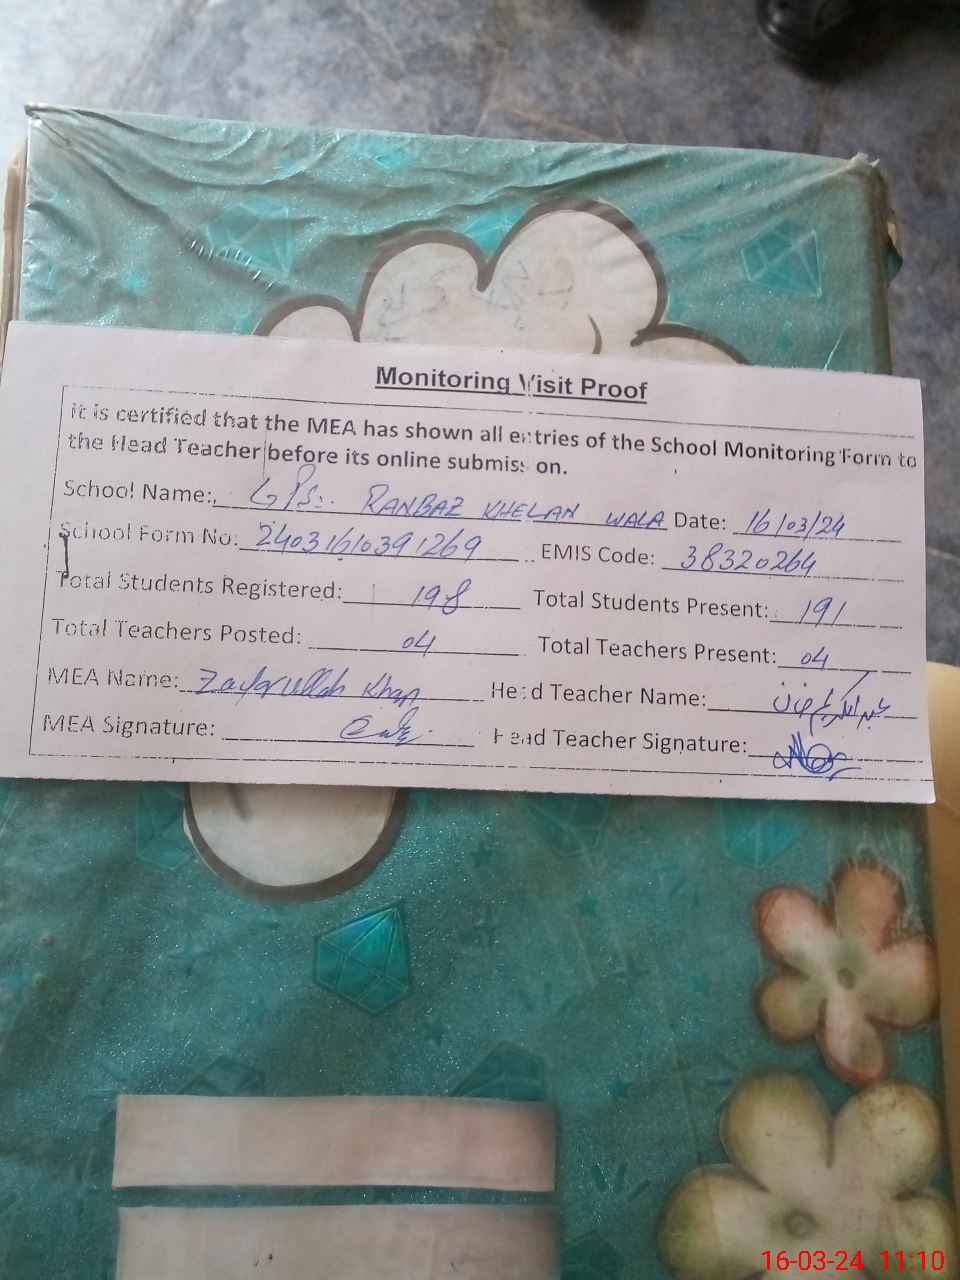 Monitoring Visit Proof
It is certified that the MEA has shown all entries of the School Monitoring Form to
the Head Teacher before its online submission.
School Name: GPS: RANBAZ KHELAN WALA Date: 16/03/24
School Form No: 2403161039 1269 EMIS Code: 38320264
Total Students Registered: 198 Total Students Present: 191
Total Teachers Posted: 04 Total Teachers Present: 04
MEA Name: Zafarullah Khan Head Teacher Name:
MEA Signature: Head Teacher Signature:
16-03-24 11:10